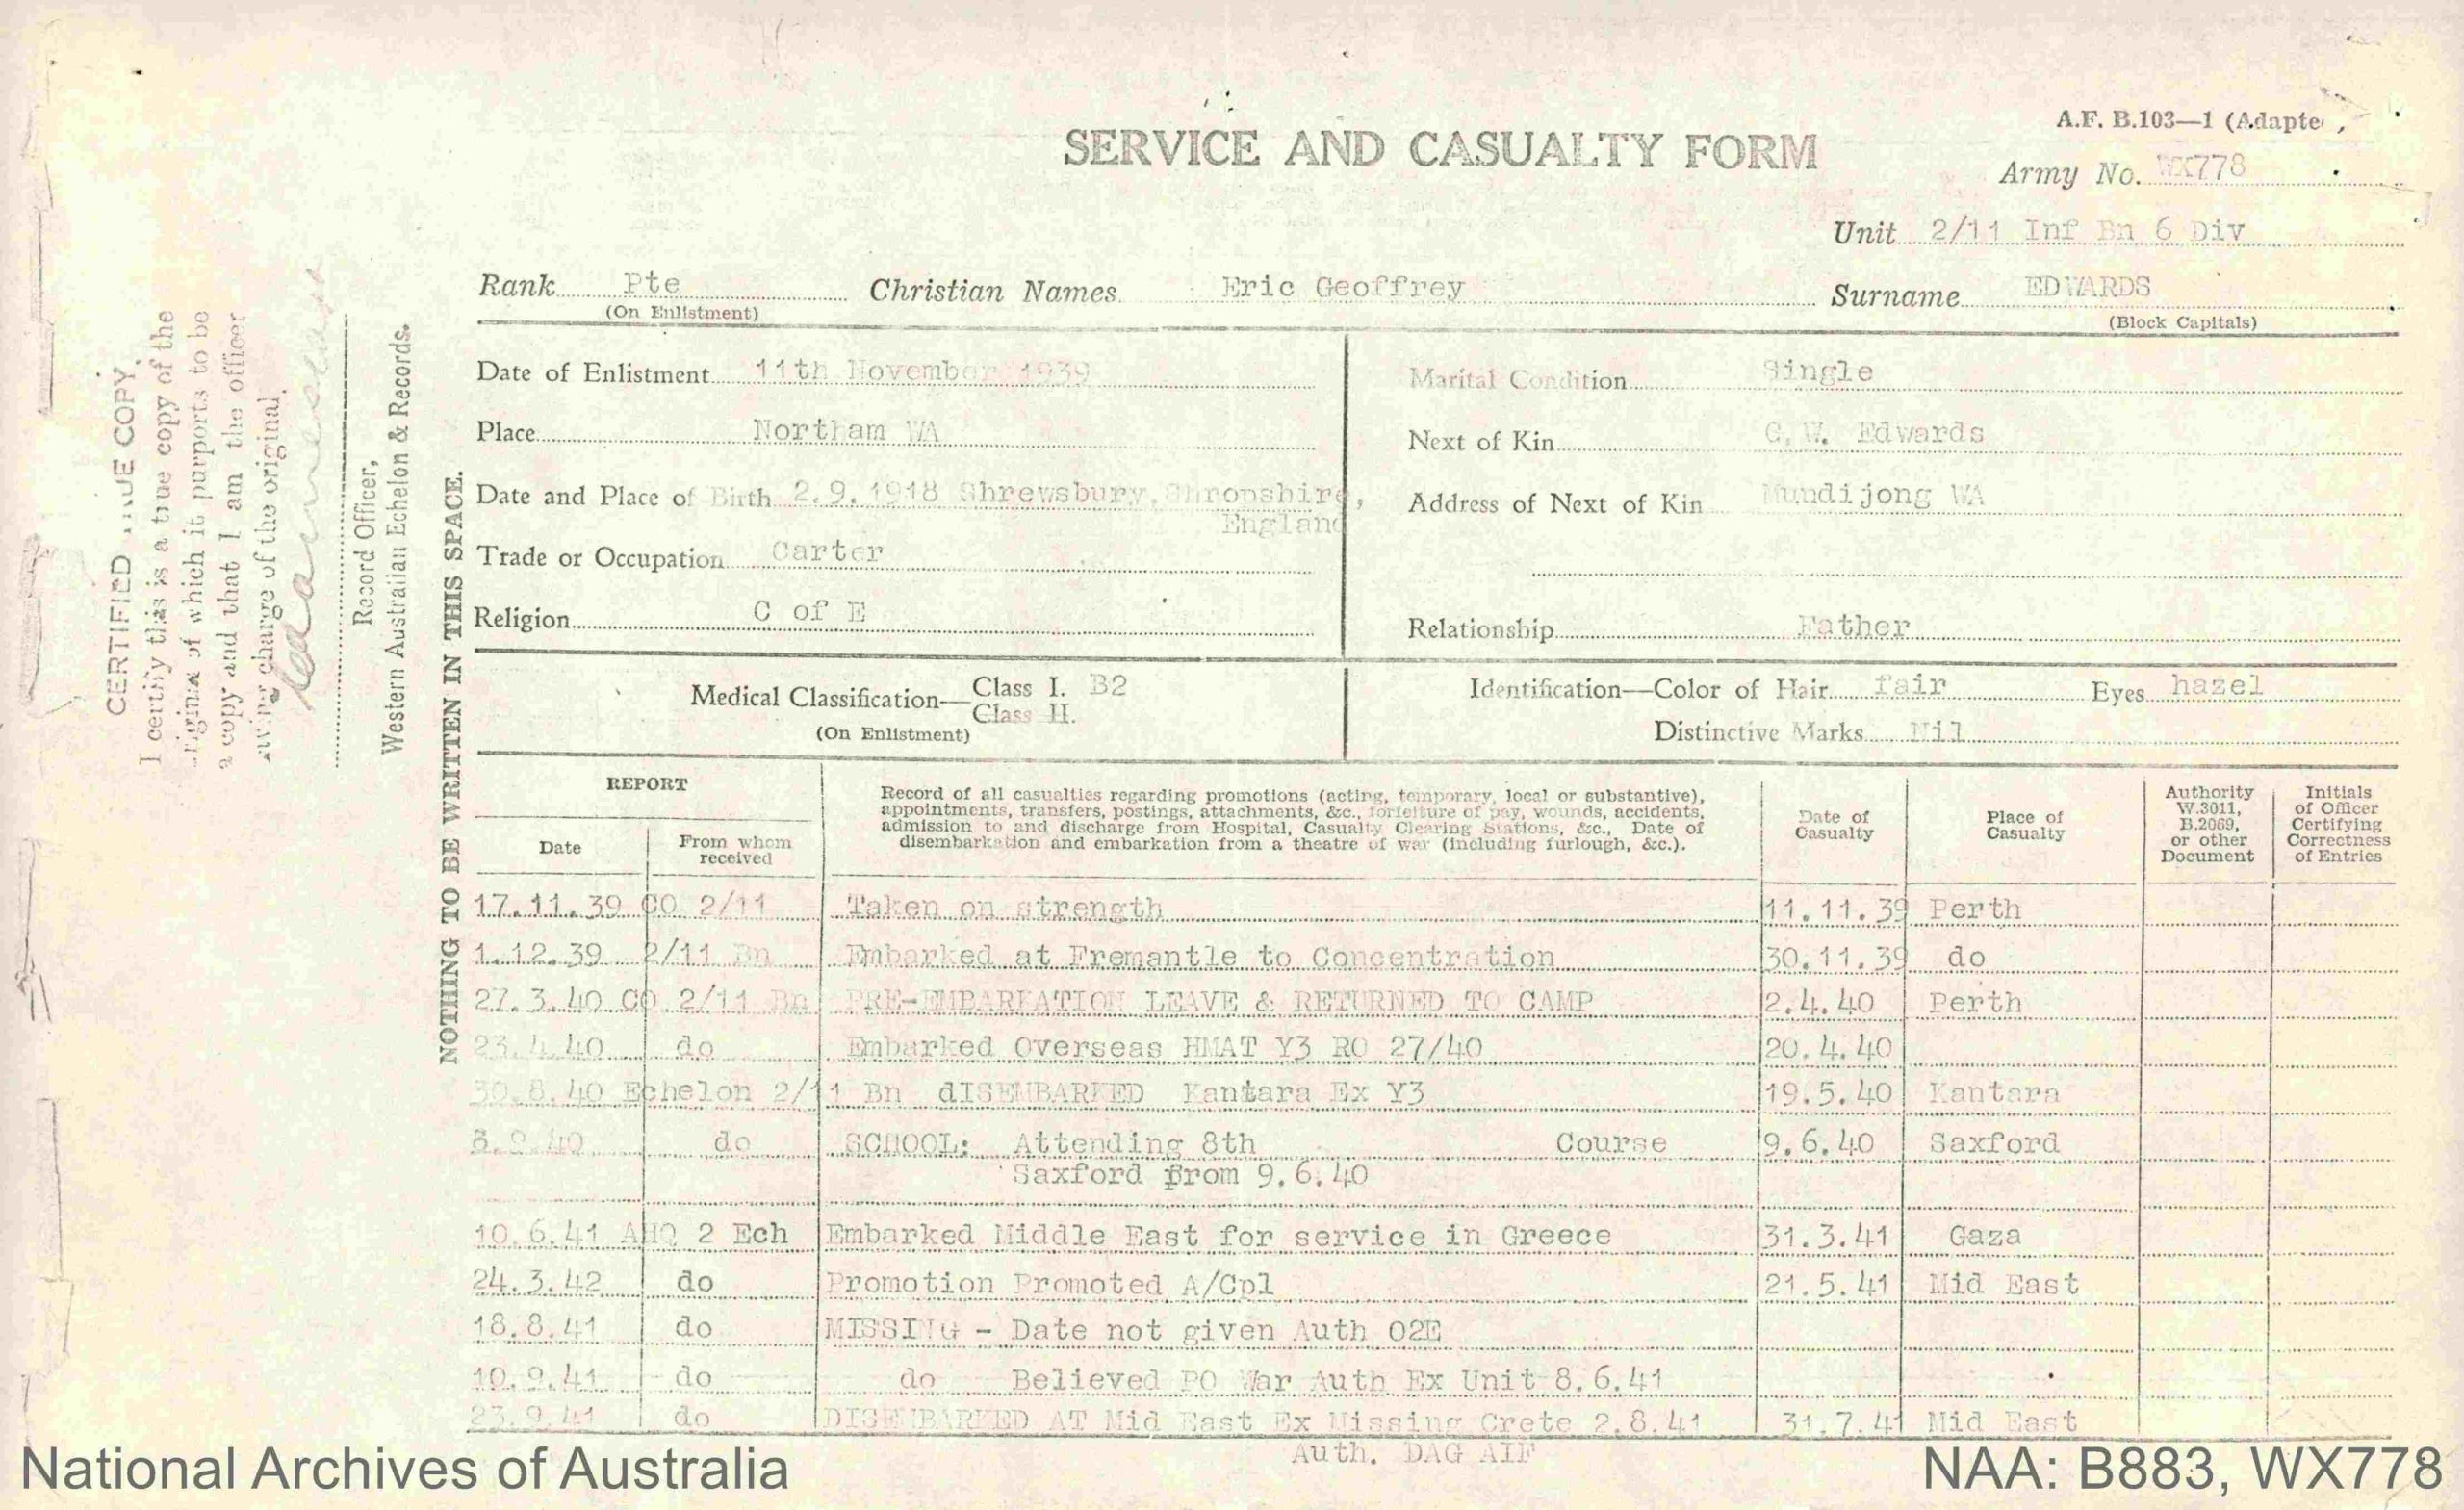 A.F. B.103—1 (Adapte
SERVICE AND CASUALTY FORM
Army No. WX778
Unit 2/11 Inf Bn 6 Div
Rank Pte Christian Names Eric Geoffrey Surname EDWARDS
(On Enlistment) (Block Capitals)
Date of Enlistment 11th November 1939
Place Northam WA
Date and Place of Birth 2.9.1918 Shrewsbury, Shropshire,
England
Trade or Occupation Carter
Religion C of E
Marital Condition Single
Next of Kin G. W. Edwards
Address of Next of Kin Mundijong WA
Relationship Father
Medical Classification— Class I. B2
Class II.
(On Enlistment)
Identification—Color of Hair fair Eyes hazel
Distinctive Marks Nil
REPORT
Date
From whom
received
Record of all casualties regarding promotions (acting, temporary, local or substantive),
appointments, transfers, postings, attachments, &c., forfeiture of pay, wounds, accidents,
admission to and discharge from Hospital, Casualty Clearing Stations, &c., Date of
disembarkation and embarkation from a theatre of war (including furlough, &c.).
Date of
Casualty
Place of
Casualty
Authority
W.3011,
B.2069,
or other
Document
Initials
of Officer
Certifying
Correctness
of Entries
17.11.39 CO 2/11 Taken on strength 11.11.39 Perth
1.12.39 2/11 Bn Embarked at Fremantle to Concentration 30.11.39 do
27.3.40 CO 2/11 Bn PRE-EMBARKATION LEAVE & RETURNED TO CAMP 2.4.40 Perth
23.4.40 do Embarked Overseas HMAT Y3 RO 27/40 20.4.40
30.8.40 Echelon 2/11 Bn dISEMBARKED Kantara Ex Y3 19.5.40 Kantara
do SCHOOL: Attending 8th Course 9.6.40 Saxford
Saxford from 9.6.40
10.6.41 AHQ 2 Ech Embarked Middle East for service in Greece 31.3.41 Gaza
24.3.42 do Promotion Promoted A/Cpl 21.5.41 Mid East
18.8.41 do MISSING - Date not given Auth 02E
10.9.41 do do Believed PO War Auth Ex Unit 8.6.41
23.9.41 do DISEMBARKED AT Mid East Ex Missing Crete 2.8.41 31.7.41 Mid East
Auth. DAG AIF
NOTHING TO BE WRITTEN IN THIS SPACE.
CERTIFIED TRUE COPY.
I certify this is a true copy of the
original of which it purports to be
a copy and that I am the officer
having charge of the original.
Record Officer,
Western Australian Echelon & Records.
National Archives of Australia
NAA: B883, WX778